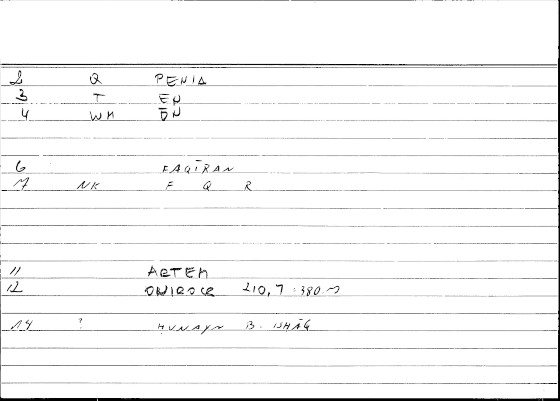 2 Q PENIA
3 T EN
4 WH ĒN
6 FAQĪRAN
7 NK F Q R
11 ARTEM
12 ONIROCR 210,7 :380.
14 ? HUNAYN B. ISHĀQ